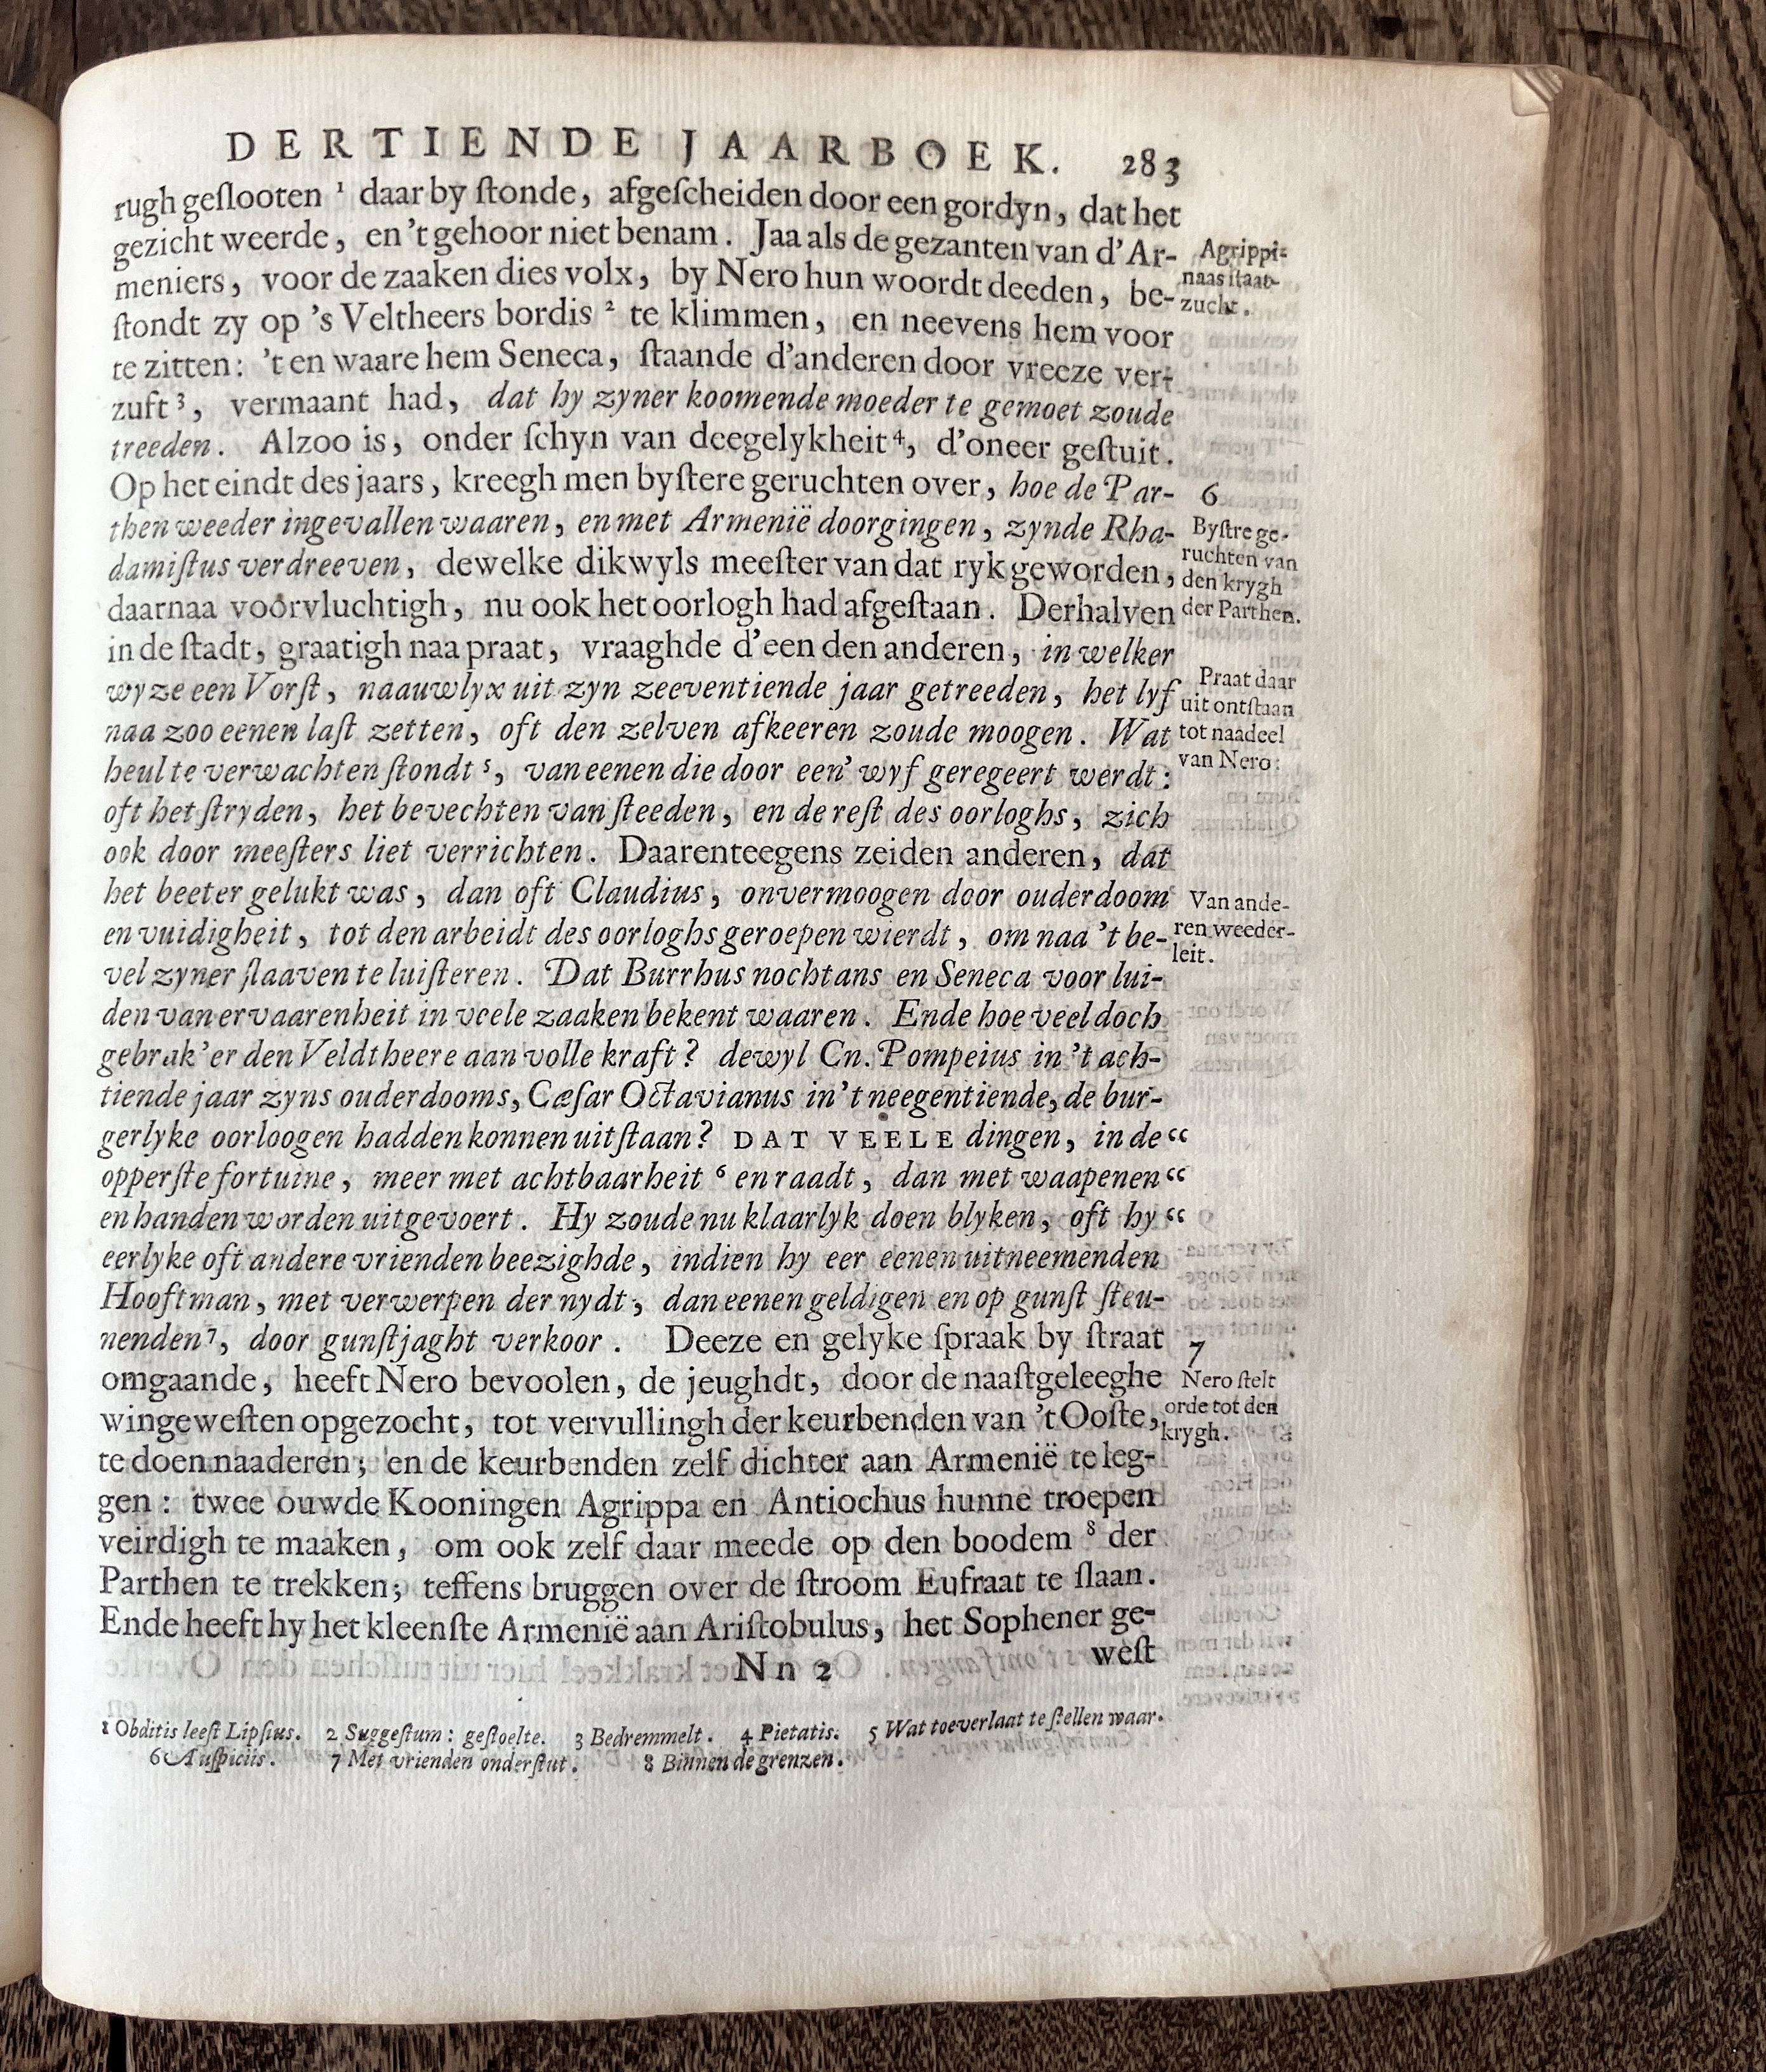 DERTIENDE JAARBOEK. 283
rugh geslooten ¹ daar by stonde, afgescheiden door een gordyn, dat het
gezicht weerde, en 't gehoor niet benam. Jaa als de gezanten van d'Ar-
meniers, voor de zaaken dies volx, by Nero hun woordt deeden, be-
stondt zy op 's Veltheers bordis ² te klimmen, en neevens hem voor
te zitten: 't en waare hem Seneca, staande d'anderen door vreeze ver-
zuft ³, vermaant had, dat hy zyner koomende moeder te gemoet zoude
treeden. Alzoo is, onder schyn van deegelykheit ⁴, d'oneer gestuit.
Op het eindt des jaars, kreegh men bystere geruchten over, hoe de Par-
then weeder ingevallen waaren, en met Armenië doorgingen, zynde Rha-
damistus verdreeven, dewelke dikwyls meester van dat ryk geworden,
daarnaa voorvluchtigh, nu ook het oorlogh had afgestaan. Derhalven
in de stadt, graatigh naa praat, vraaghde d'een den anderen, in welker
wyze een Vorst, naauwlyx uit zyn zeeventiende jaar getreeden, het lyf
naa zoo eenen last zetten, oft den zelven afkeeren zoude moogen. Wat
heul te verwachten stondt ⁵, van eenen die door een' wyf geregeert werdt:
oft het stryden, het bevechten van steeden, en de rest des oorloghs, zich
ook door meesters liet verrichten. Daarenteegens zeiden anderen, dat
het beeter gelukt was, dan oft Claudius, onvermoogen door ouderdoom
en vuidigheit, tot den arbeidt des oorloghs geroepen wierdt, om naa 't be-
vel zyner slaaven te luisteren. Dat Burrhus nochtans en Seneca voor lui-
den van ervaarenheit in veele zaaken bekent waaren. Ende hoe veel doch
gebrak 'er den Veldtheere aan volle kraft? dewyl Cn. Pompeius in 't ach-
tiende jaar zyns ouderdooms, Cæsar Octavianus in 't neegentiende, de bur-
gerlyke oorloogen hadden konnen uitstaan? DAT VEELE dingen, in de “
opperste fortuine, meer met achtbaarheit ⁶ en raadt, dan met waapenen “
en handen worden uitgevoert. Hy zoude nu klaarlyk doen blyken, oft hy “
eerlyke oft andere vrienden beezighde, indien hy eer eenen uitneemenden
Hooftman, met verwerpen der nydt, dan eenen geldigen en op gunst steu-
nenden ⁷, door gunstjaght verkoor. Deeze en gelyke spraak by straat
omgaande, heeft Nero bevoolen, de jeughdt, door de naastgeleeghe
wingewesten opgezocht, tot vervullingh der keurbenden van 't Ooste,
te doen naaderen; en de keurbenden zelf dichter aan Armenië te leg-
gen: twee ouwde Kooningen Agrippa en Antiochus hunne troepen
veirdigh te maaken, om ook zelf daar meede op den boodem ⁸ der
Parthen te trekken; teffens bruggen over de stroom Eufraat te slaan.
Ende heeft hy het kleenste Armenië aan Aristobulus, het Sophener ge-
west
Nn 2
1 Obditis leest Lipsius. 2 Suggestum: gestoelte. 3 Bedremmelt. 4 Pietatis. 5 Wat toeverlaat te stellen waar.
6 Auspiciis. 7 Met vrienden onderstut. 8 Binnen de grenzen.
Agrippi-
naas staat-
zucht.
6
Bystre ge-
ruchten van
den krygh
der Parthen.
Praat daar
uit ontstaan
tot naadeel
van Nero:
Van ande-
ren weeder-
leit.
7
Nero stelt
orde tot den
krygh.